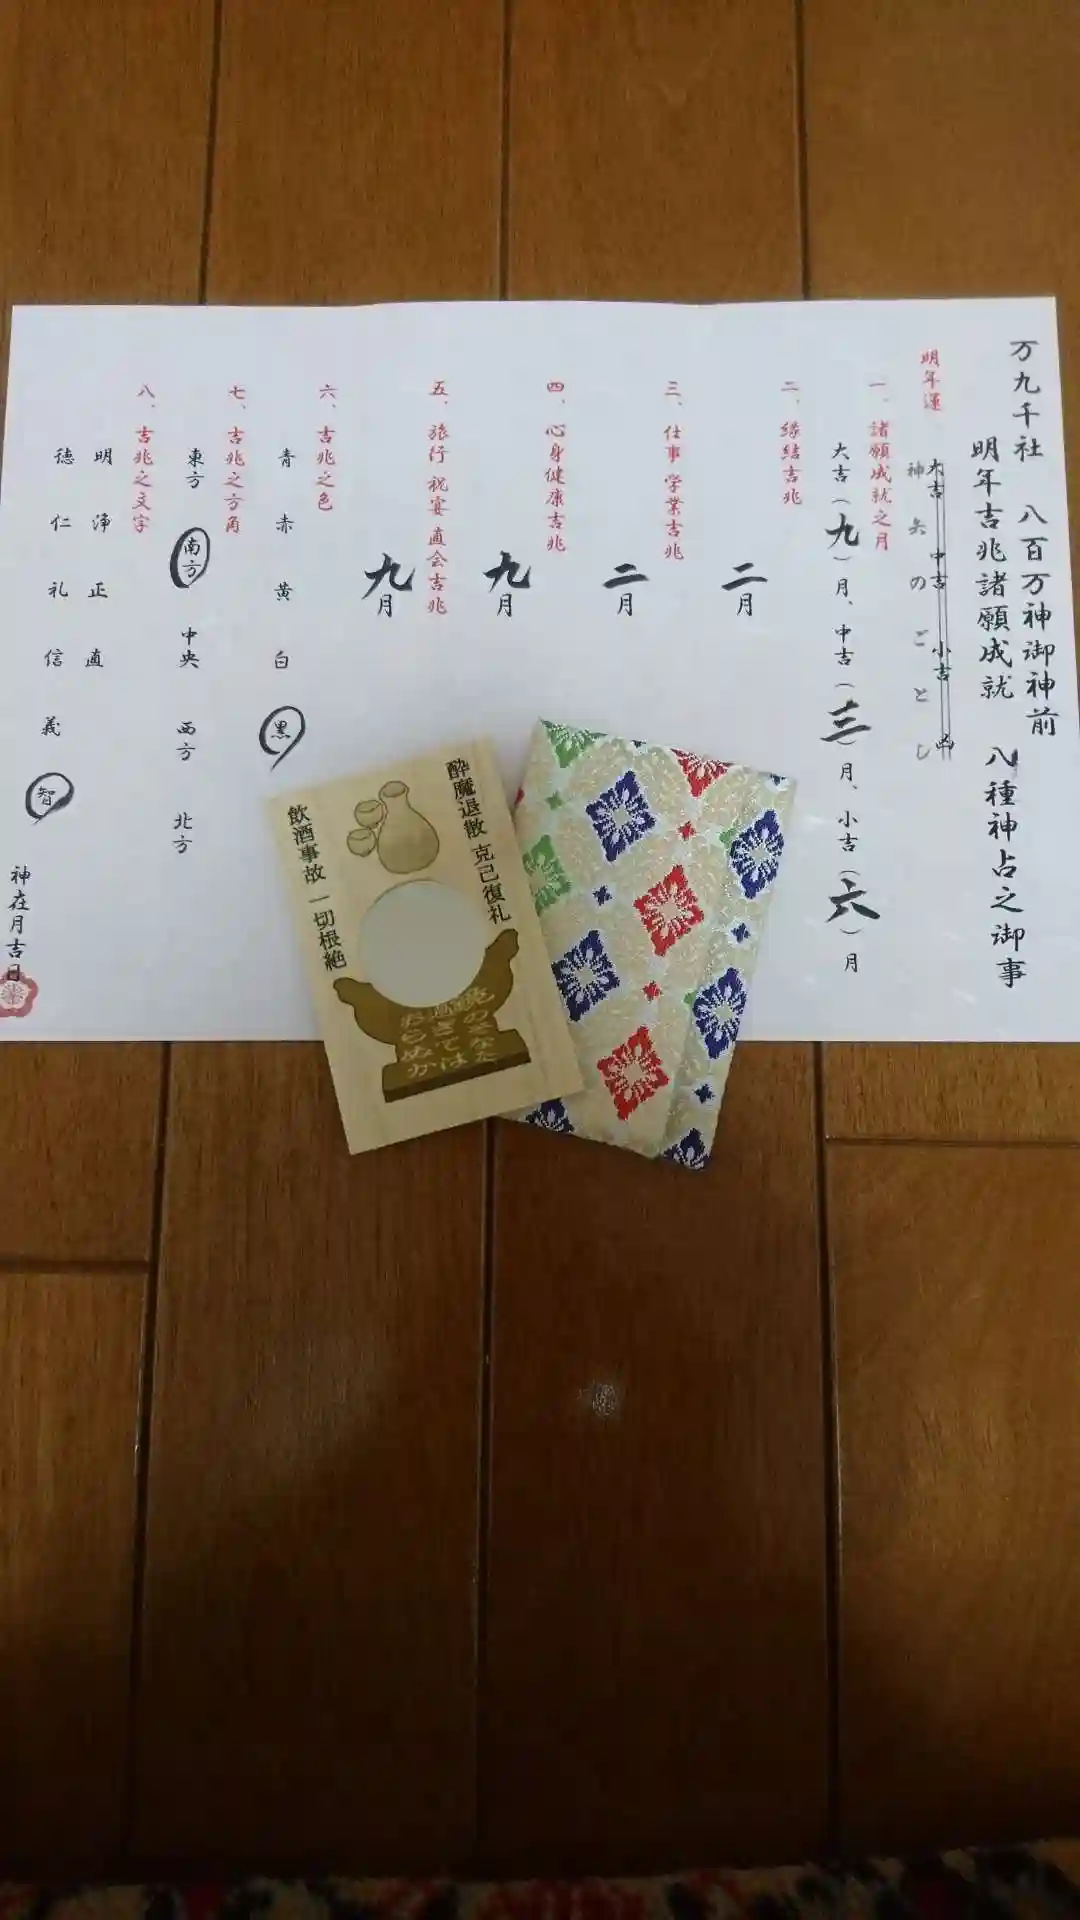 万九千社　八百万神御神前
明年吉兆諸願成就　八種神占之御事
明年運
大吉　中吉　小吉　凶
神矢のごとし
一、諸願成就之月
大吉（九）月、中吉（三）月、小吉（六）月
二、縁結吉兆
二月
三、仕事 学業吉兆
二月
四、心身健康吉兆
九月
五、旅行 祝宴 直会吉兆
九月
六、吉兆之色
青　赤　黄　白　黒
七、吉兆之方角
東方　南方　中央　西方　北方
八、吉兆之文字
明　浄　正　直
徳　仁　礼　信　義　智
神在月吉日
酔魔退散 克己復礼
飲酒事故 一切根絶
鏡のあなた
過ぎては
おらぬか